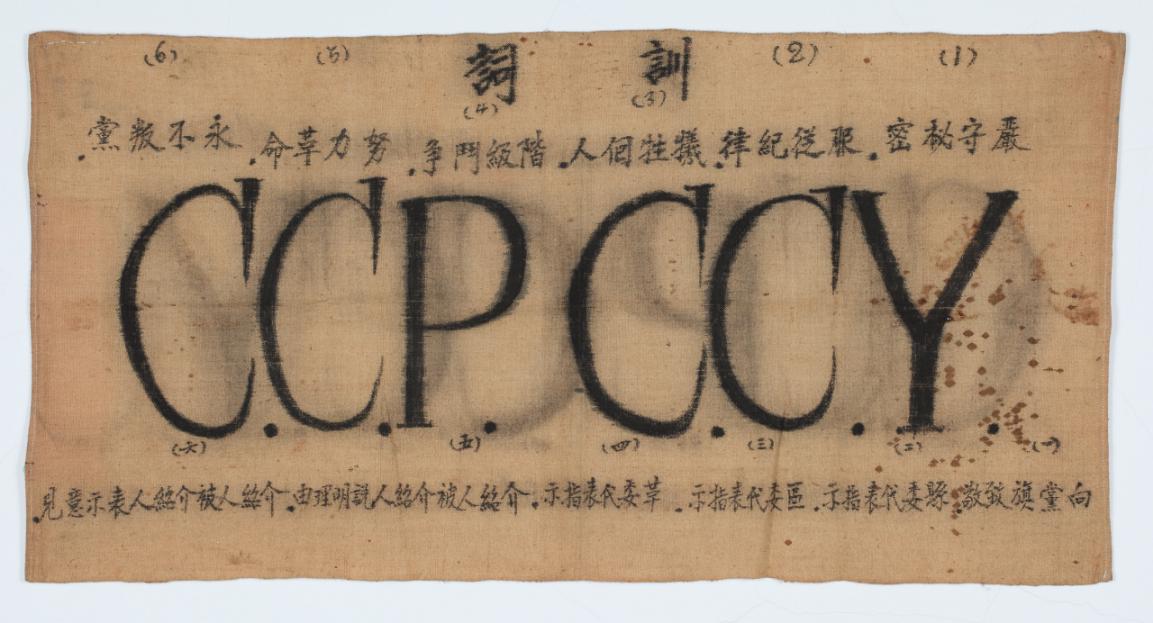 (1) (2) 訓 詞 (5) (6)
(3) (4)
嚴守秘密.服從紀律.犧牲個人.階級鬥争.努力革命.永不叛黨.
C.C.P. C.C.Y.
(一) (二) (三) (四) (五) (六)
向黨旗致敬.縣委代表指示.區委代表指示.革委代表指示.介紹人被介紹人說明理由.介紹人被介紹人表示意見.